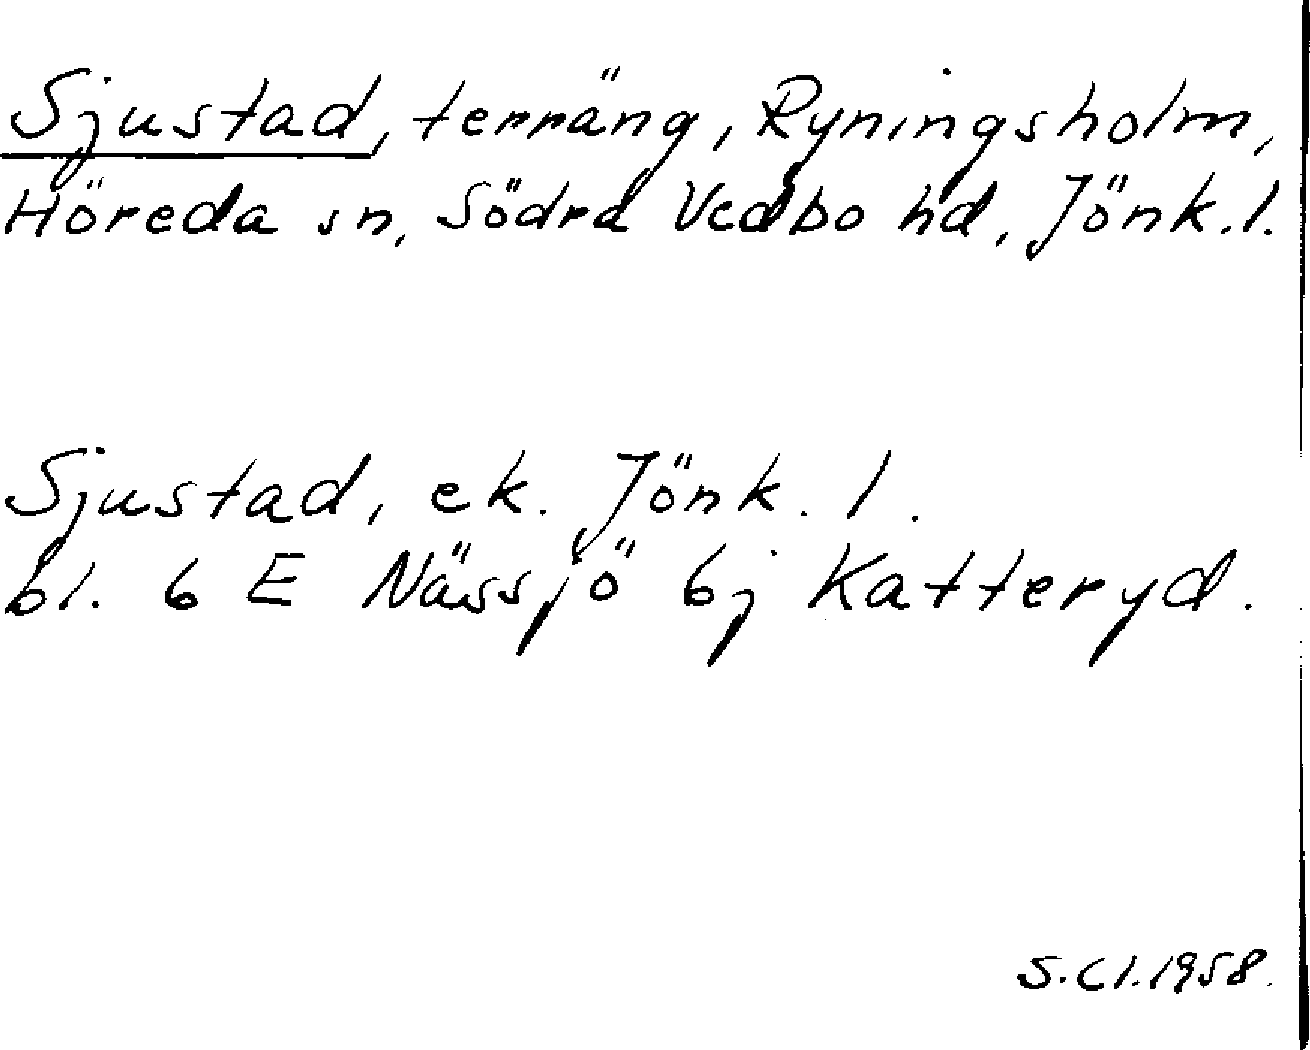 Sjustad, terräng, Ryningsholm,
Höreda sn, Södra Vedbo hd, Jönk.l.
Sjustad, ek. Jönk. l.
bl. 6 E Nässjö 6j Katteryd.
S.Cl.1958.